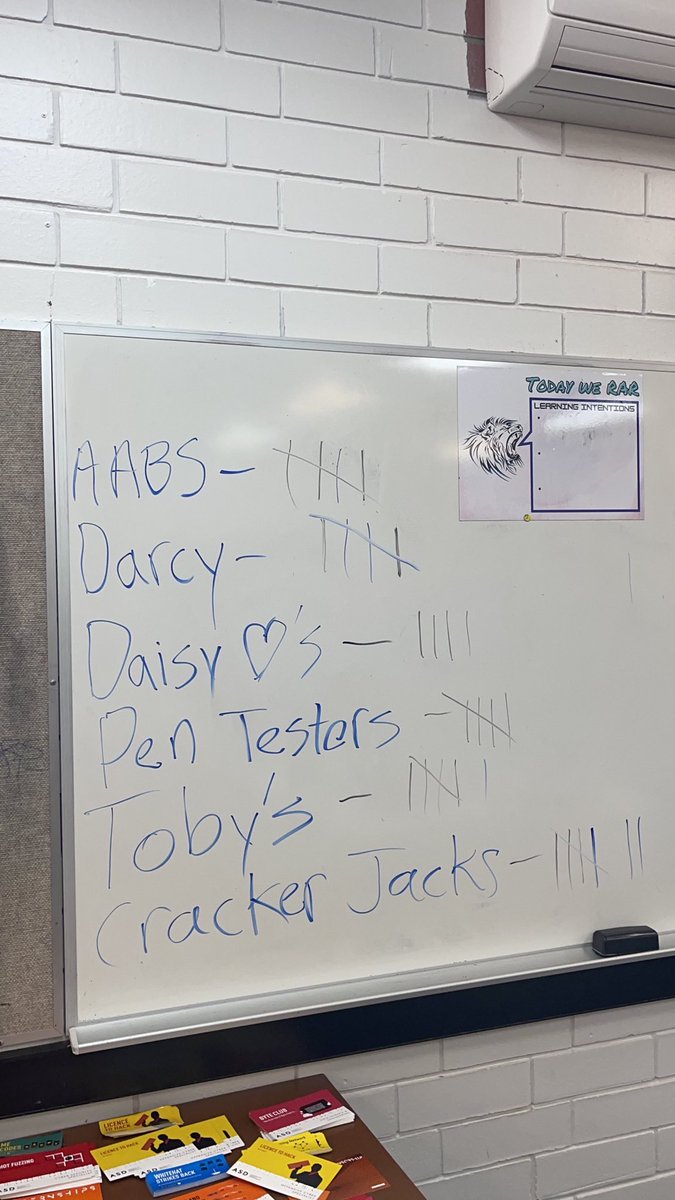 TODAY WE RAR
LEARNING INTENTIONS
AABS -
Darcy -
Daisy ♡'s -
Pen Testers -
Toby's -
Cracker Jacks -
LICENCE TO HACK
BYTE CLUB
LICENCE TO HACK
LICENCE TO HACK
HOT FUZZING
ASD
WHITEHAT
STRIKES BACK
ASD